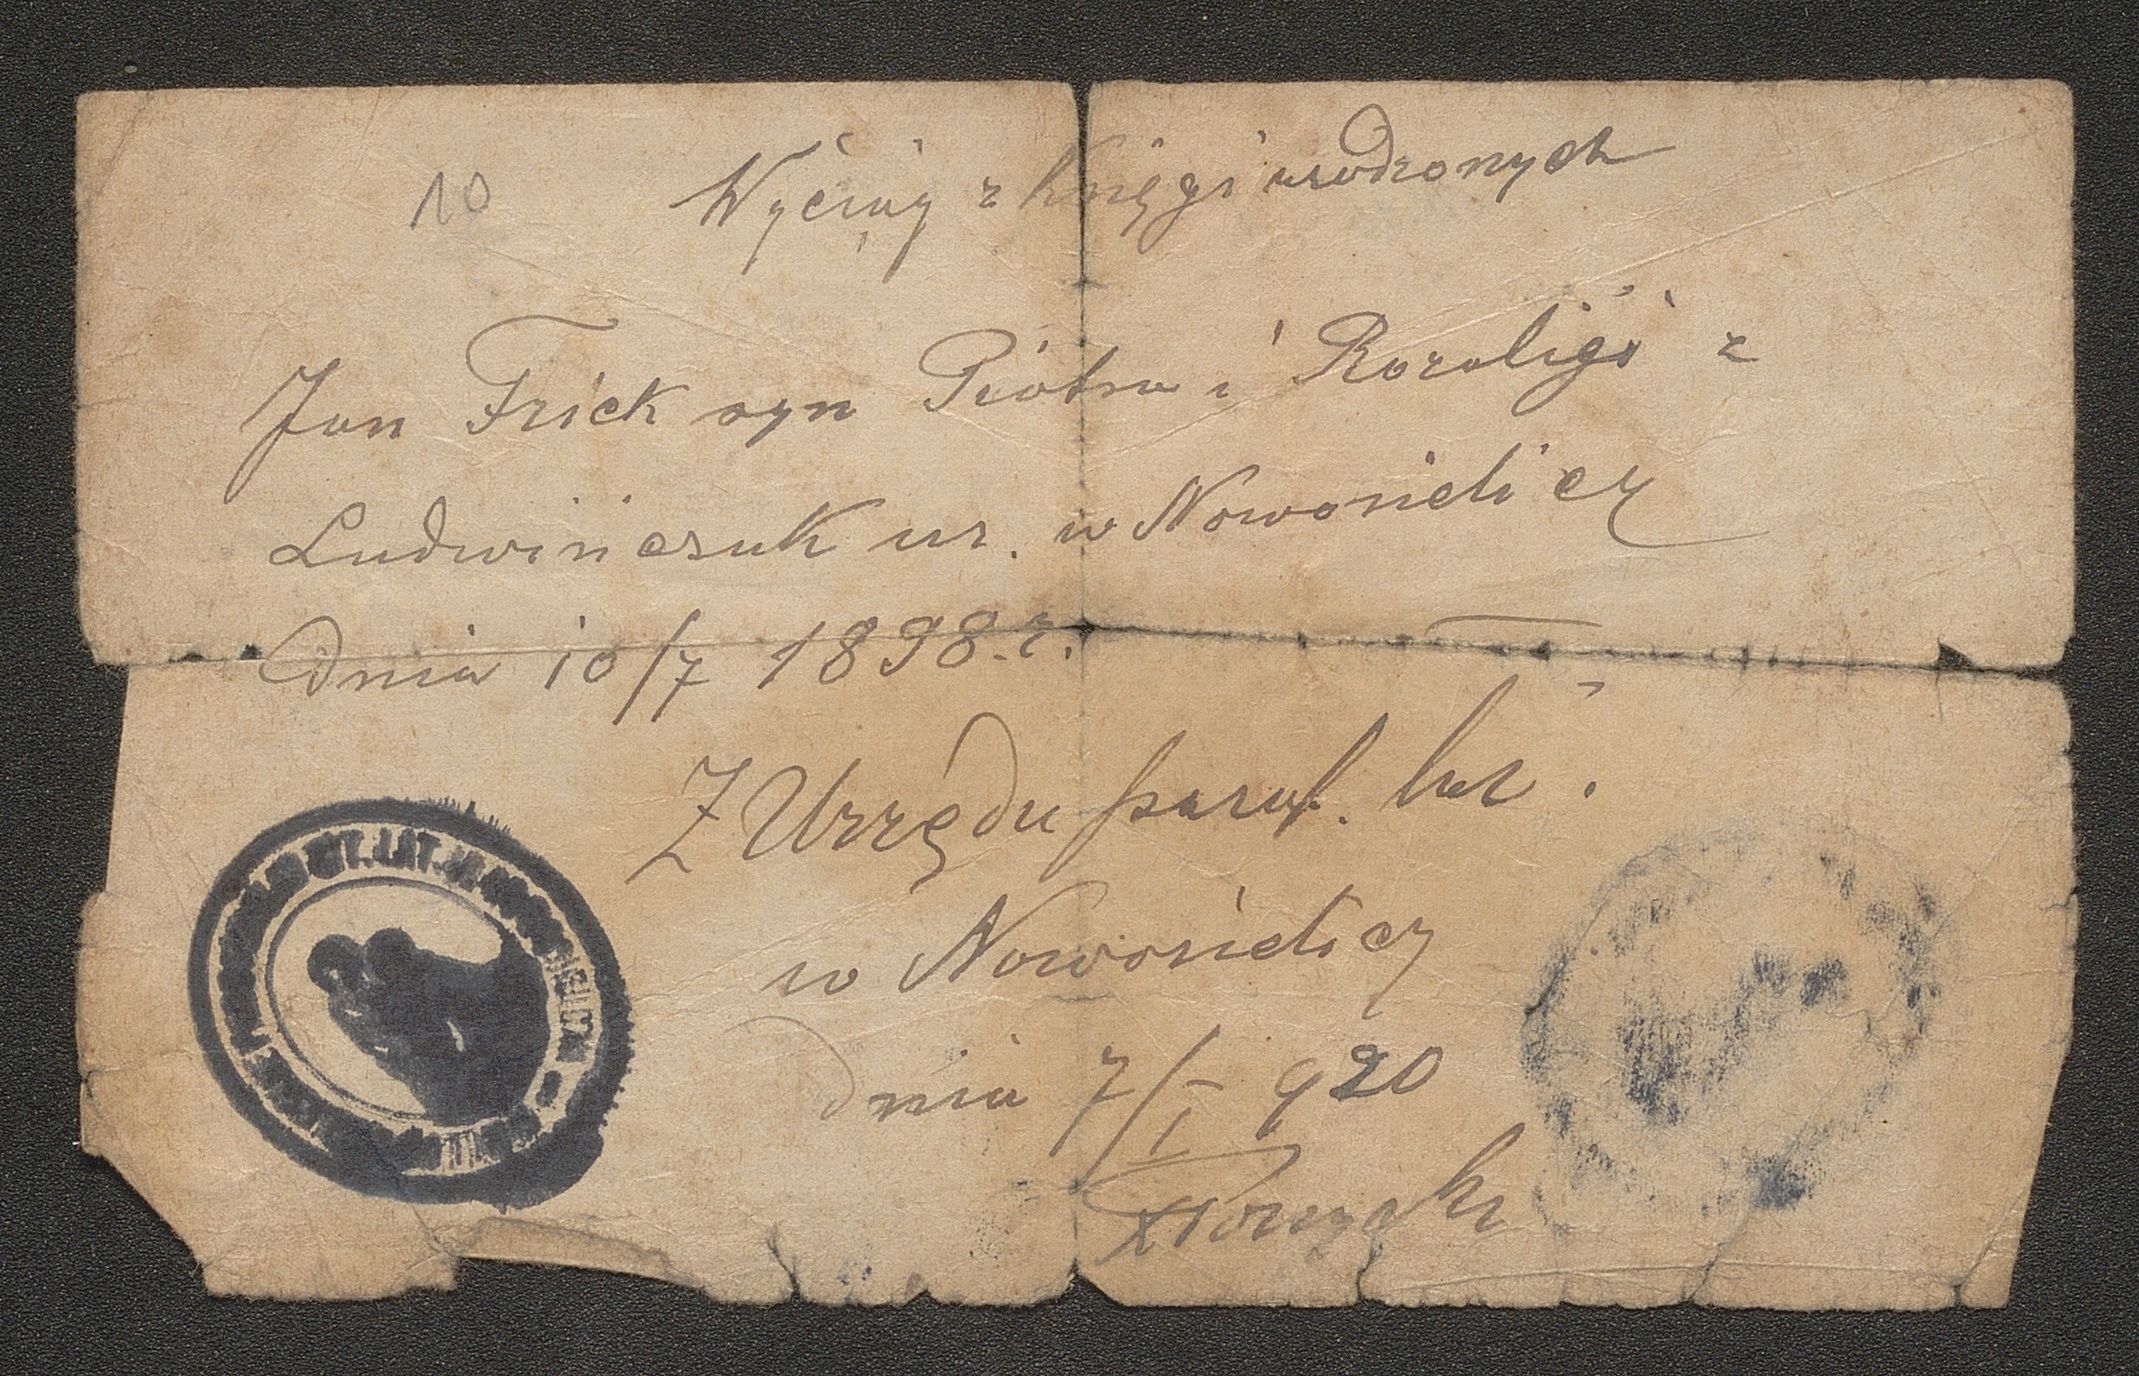 10
Wyciąg z księgi urodzonych
Jan Frick syn Piotra i Rozaligi z
Ludwińczuk ur. w Nowosielicz
dnia 10/7 1898. r.
Z Urzędu paraf. łać.
w Nowosielicz
dnia 7/I 920